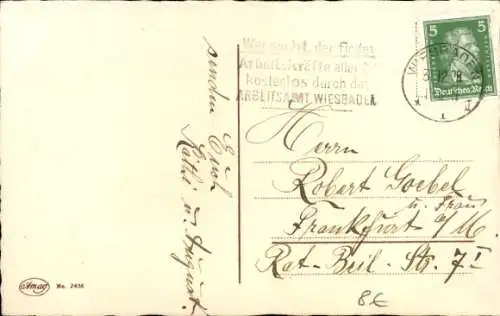 senden Euch
Käthi u. August.
Wer sucht, der findet
Arbeitskräfte aller Art
kostenlos durch das
ARBEITSAMT WIESBADEN
WIESBADEN
5 5
Deutsches Reich
Herrn
Robert Goebel
u. Frau
Frankfurt a/M.
Rat-Beil-Str. 7 I
Amag No. 2436
8€